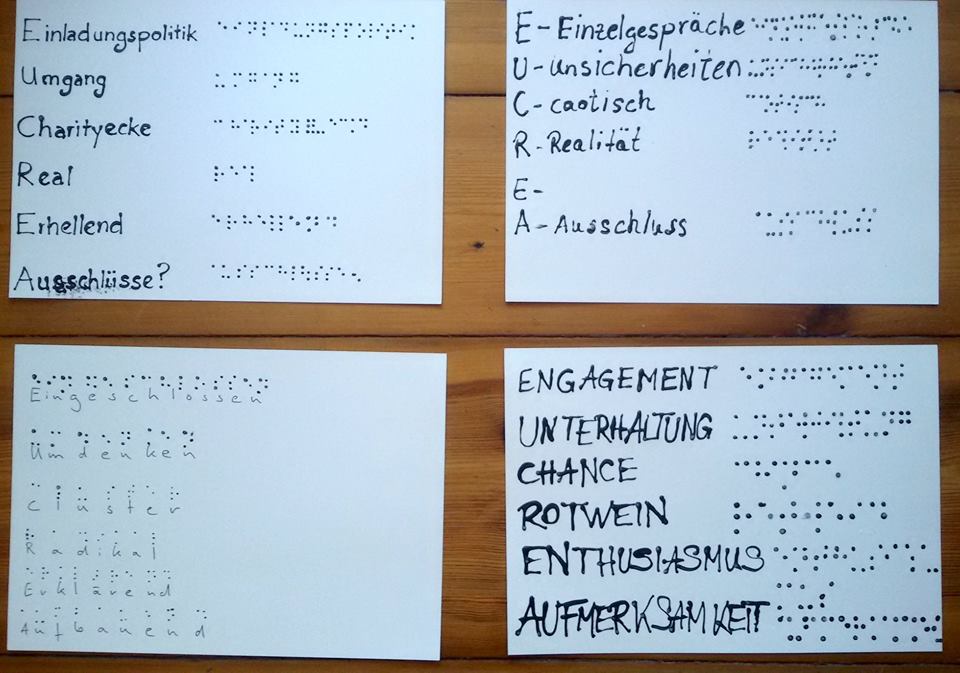 Einladungspolitik
Umgang
Charityecke
Real
Erhellend
Ausschlüsse?
E - Einzelgespräche
U - Unsicherheiten
C - caotisch
R - Realität
E -
A - Ausschluss
Eingeschlossen
Umdenken
Cluster
Radikal
Erklärend
Aufbauend
ENGAGEMENT
UNTERHALTUNG
CHANCE
ROTWEIN
ENTHUSIASMUS
AUFMERKSAMKEIT